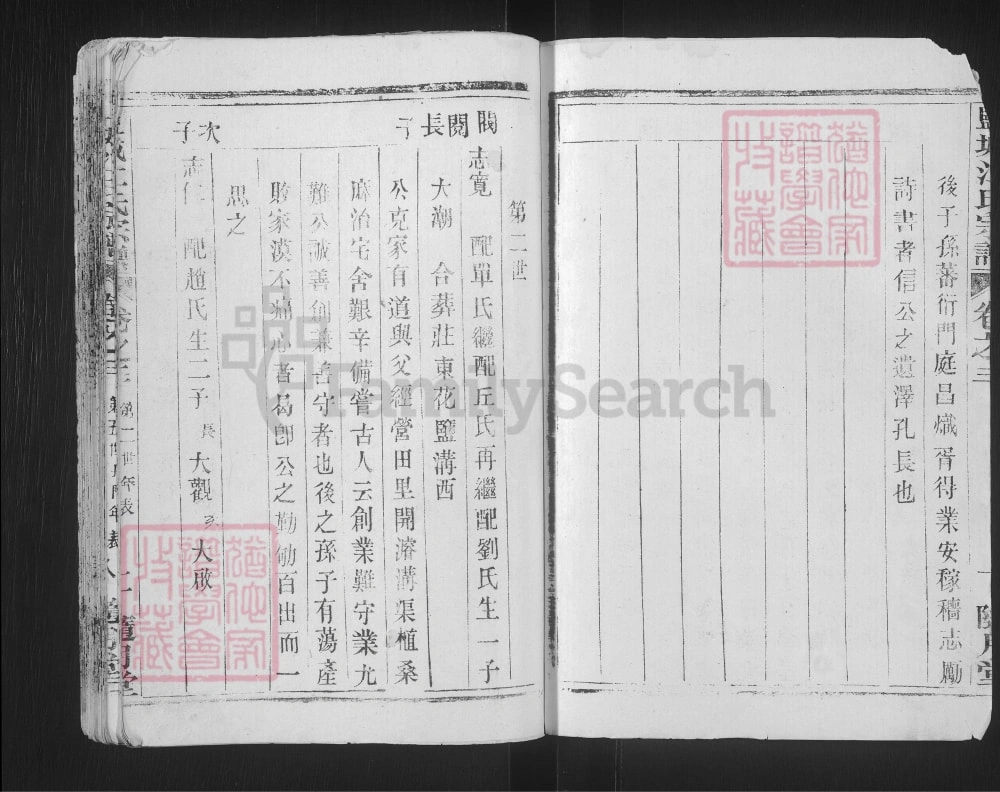 後子孫蕃衍門庭昌熾胥得業安稼穡志勵
詩書者信公之遺澤孔長也
第二世
閥閱長子
志寬 配單氏繼配丘氏再繼配劉氏生一子
大潮 合葬莊東花鹽溝西
公克家有道與父經營田里開濬溝渠植桑
麻治宅舍艱辛備嘗古人云創業難守業尤
難公誠善創兼善守者也後之孫子有蕩產
敗家漠不痛心者曷卽公之勤劬百出而一
思之
次子
志仁 配趙氏生二子 長大觀 次大啟
卷之三
隨月堂
猶他家
譜學會
收藏
猶他家
譜學會
收藏
FamilySearch